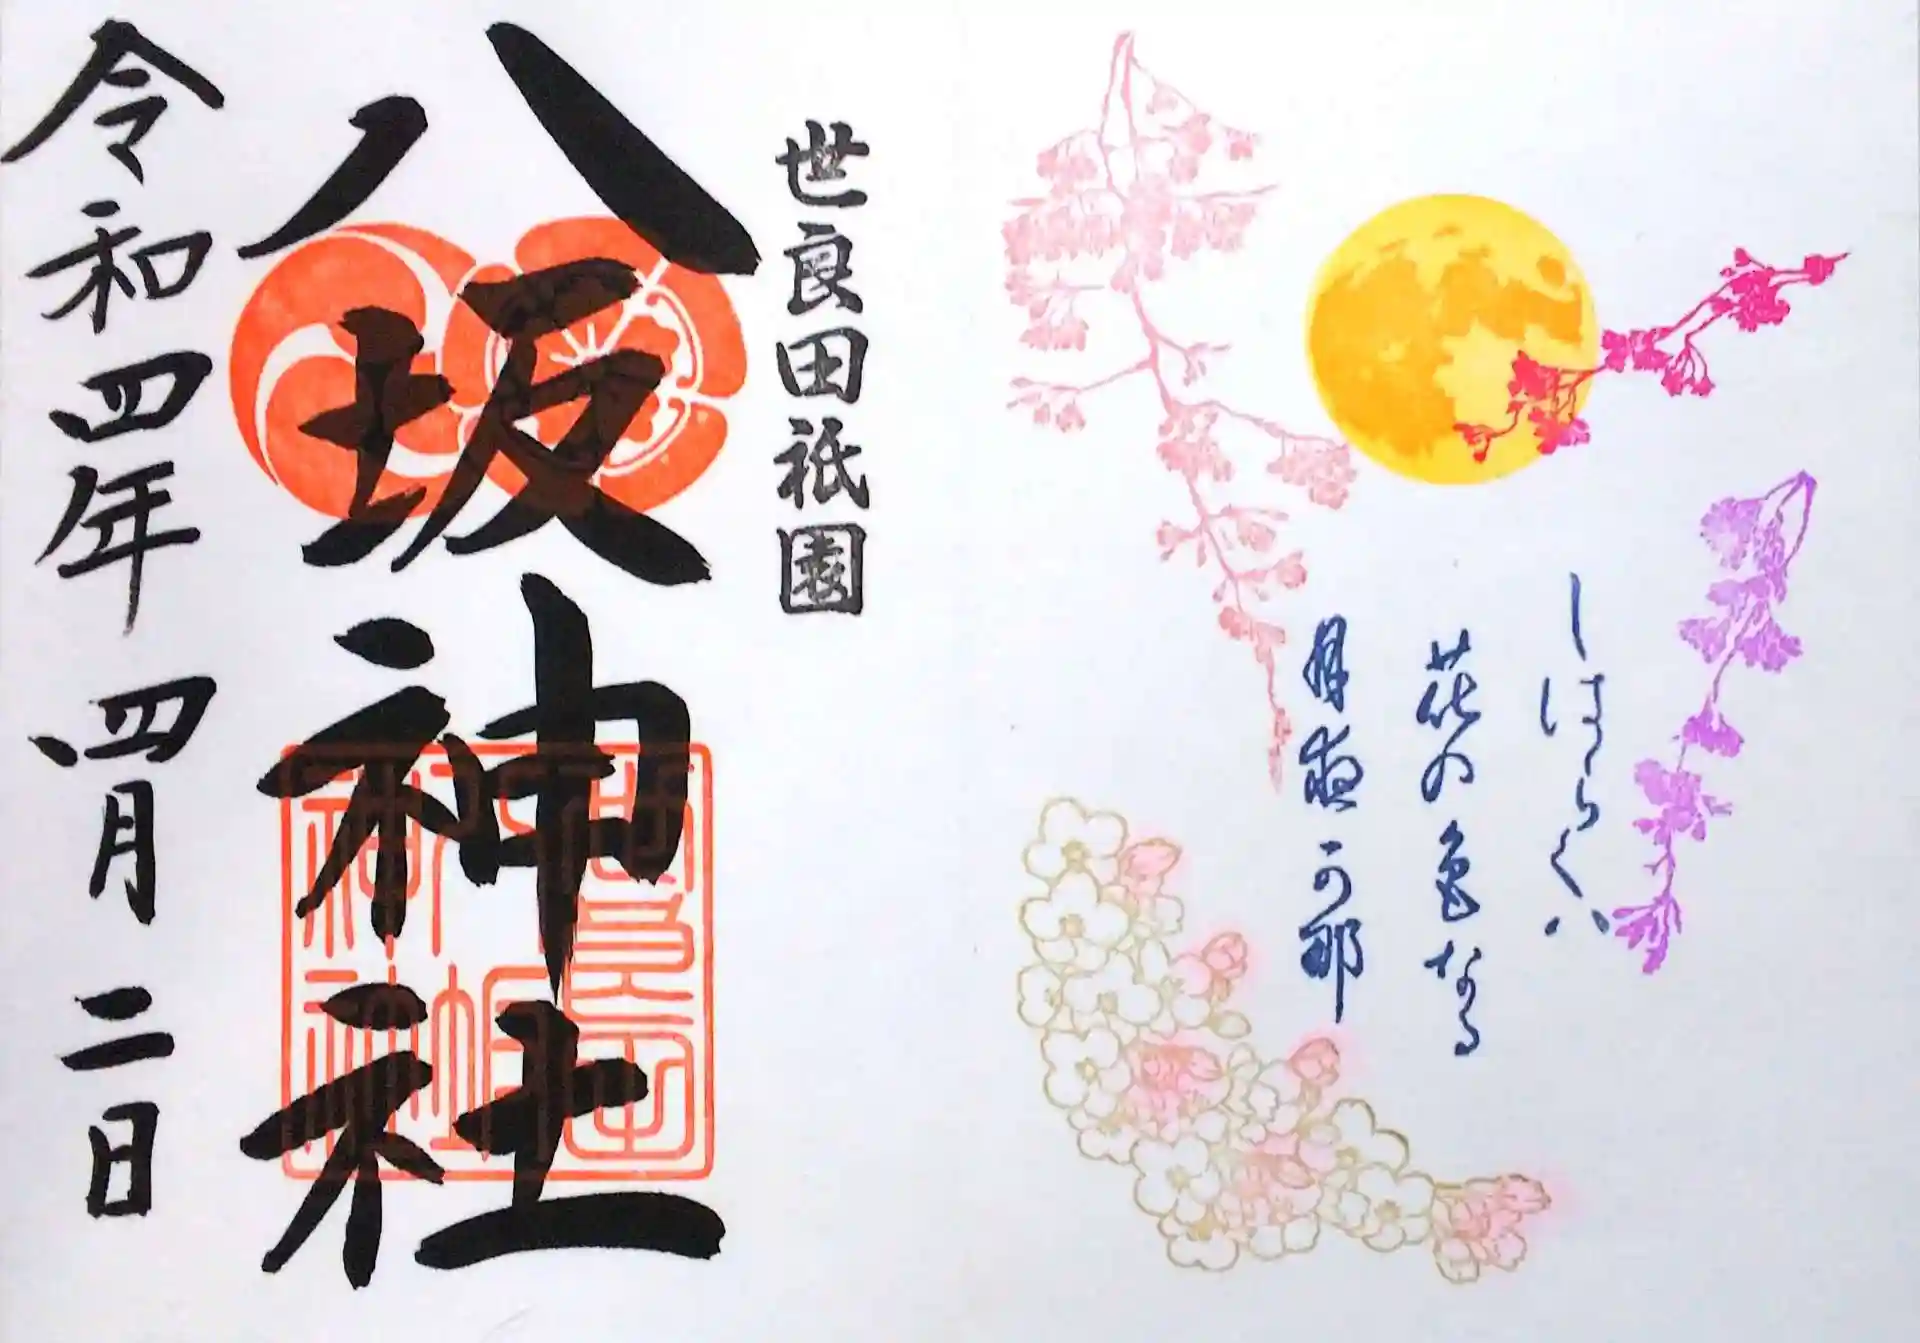 しはらく八
花のなる
月夜可那
世良田祇園
八坂神社
令和四年 四月 二日